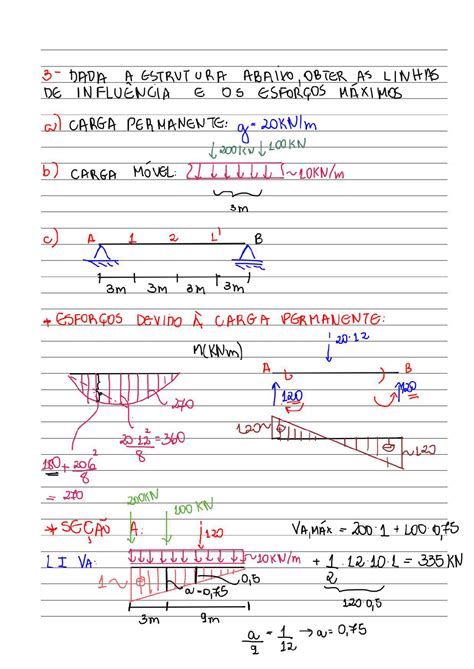 3- DADA À ESTRUTURA ABAIXO, OBTER AS LINHAS
DE INFLUÊNCIA E OS ESFORÇOS MÁXIMOS
a) CARGA PERMANENTE: g=20KN/m
200KN 100KN
b) CARGA MÓVEL: ~10KN/m
3m
c) A 1 2 1' B
3m 3m 3m 3m
* ESFORÇOS DEVIDO À CARGA PERMANENTE:
20·12
M(KNm)
A B
120 120
270
120
20·12²=360
8
120
180+20·6²
8
=270
200KN
100KN
* SEÇÃO A: 120 VA,MÁX = 200·1+100·0,75
LI VA: ~10KN/m + 1·12·10·1=335KN
2
1 0,5
a=0,75
120·0,5
3m 9m
a = 1 → a=0,75
9 12